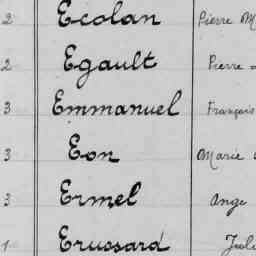 2 Ecolan Pierre M
2 Egault Pierre
3 Emmanuel François
3 Eon Marie
3 Ermel Ange
1 Erussard